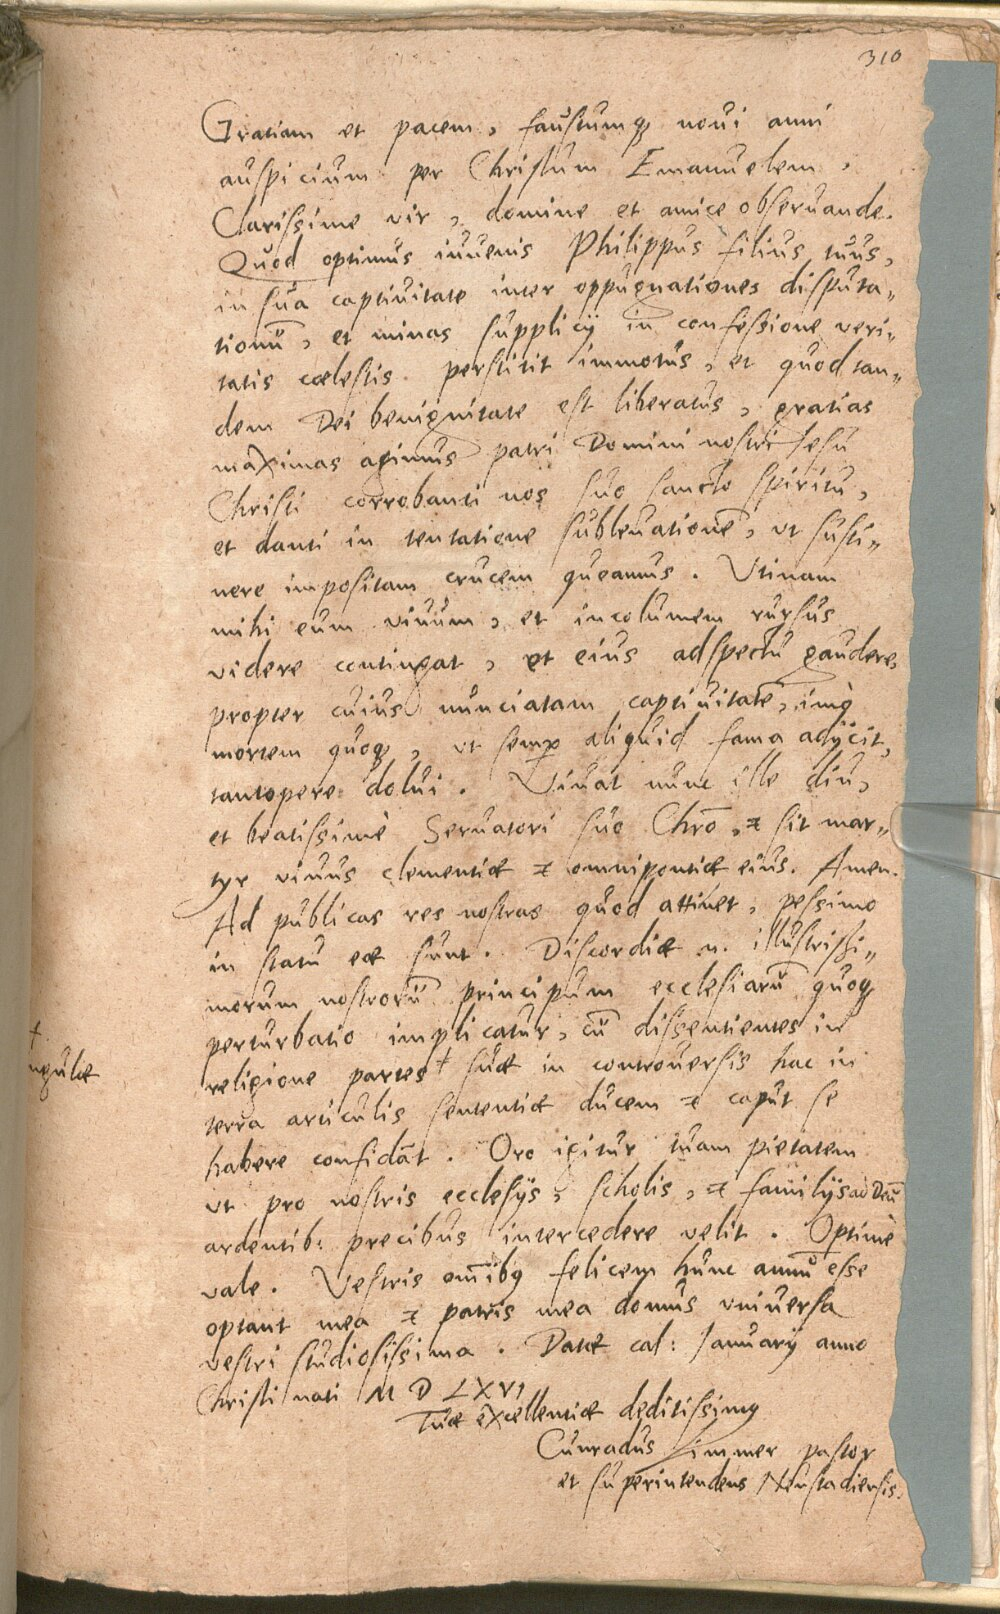 310
Gratiam et pacem, faustumq; noui anni
auspicium per Christum Emanuelem,
Clarissime vir, domine et amice obseruande.
Quod optimus iuuenis Philippus filius tuus,
in sua captiuitate inter oppugnationes disputa„
tionū, et minas supplicij in confessione veri„
tatis cœlestis perstitit immotus, et quod tan„
dem Dei benignitate est liberatus, gratias
maximas agimus patri Domini nostri Iesu
Christi corrobanti nos suo sancto spiritu,
et danti in tentatione subleuationē, vt susti„
nere impositam crucem queamus. Vtinam
mihi eum viuum, et incolumem rursus
videre contingat, et eius adspectu gaudere,
propter cuius nunciatam captiuitatē, imò
mortem quoq;, vt semp aliquid fama adijcit,
tantopere dolui. Viuat nunc ille diu,
et beatissimè Seruatori suo Chrō, & sit mar„
tyr viuus clementiæ & omnipontiæ eius. Amen.
Ad publicas res nostras quod attinet, pessimo
in statu eæ sunt. Discordiæ n. illustrissi„
morum nostrorū principum ecclesiarū quoq;
perturbatio implicatur, cū dissentientes in
religione partes † suæ in controuersis hac in
†
ngulæ
terra articulis sententiæ ducem & caput se
habere confidāt. Oro igitur tuam pietatem
vt pro nostris ecclesijs, scholis, & familijs ad Deū
ardentib: precibus intercedere velit. Optimè
vale. Vestris omībq felicem hunc annū esse
optant mea & patris mea domus vniuersa
vestri studiosissima. Datæ cal: Ianuarij anno
Christi nati M D LXVI
Tuæ excellentiæ deditissimq
Cunradus Zimmer pastor
et superintendens Neustadiensis.